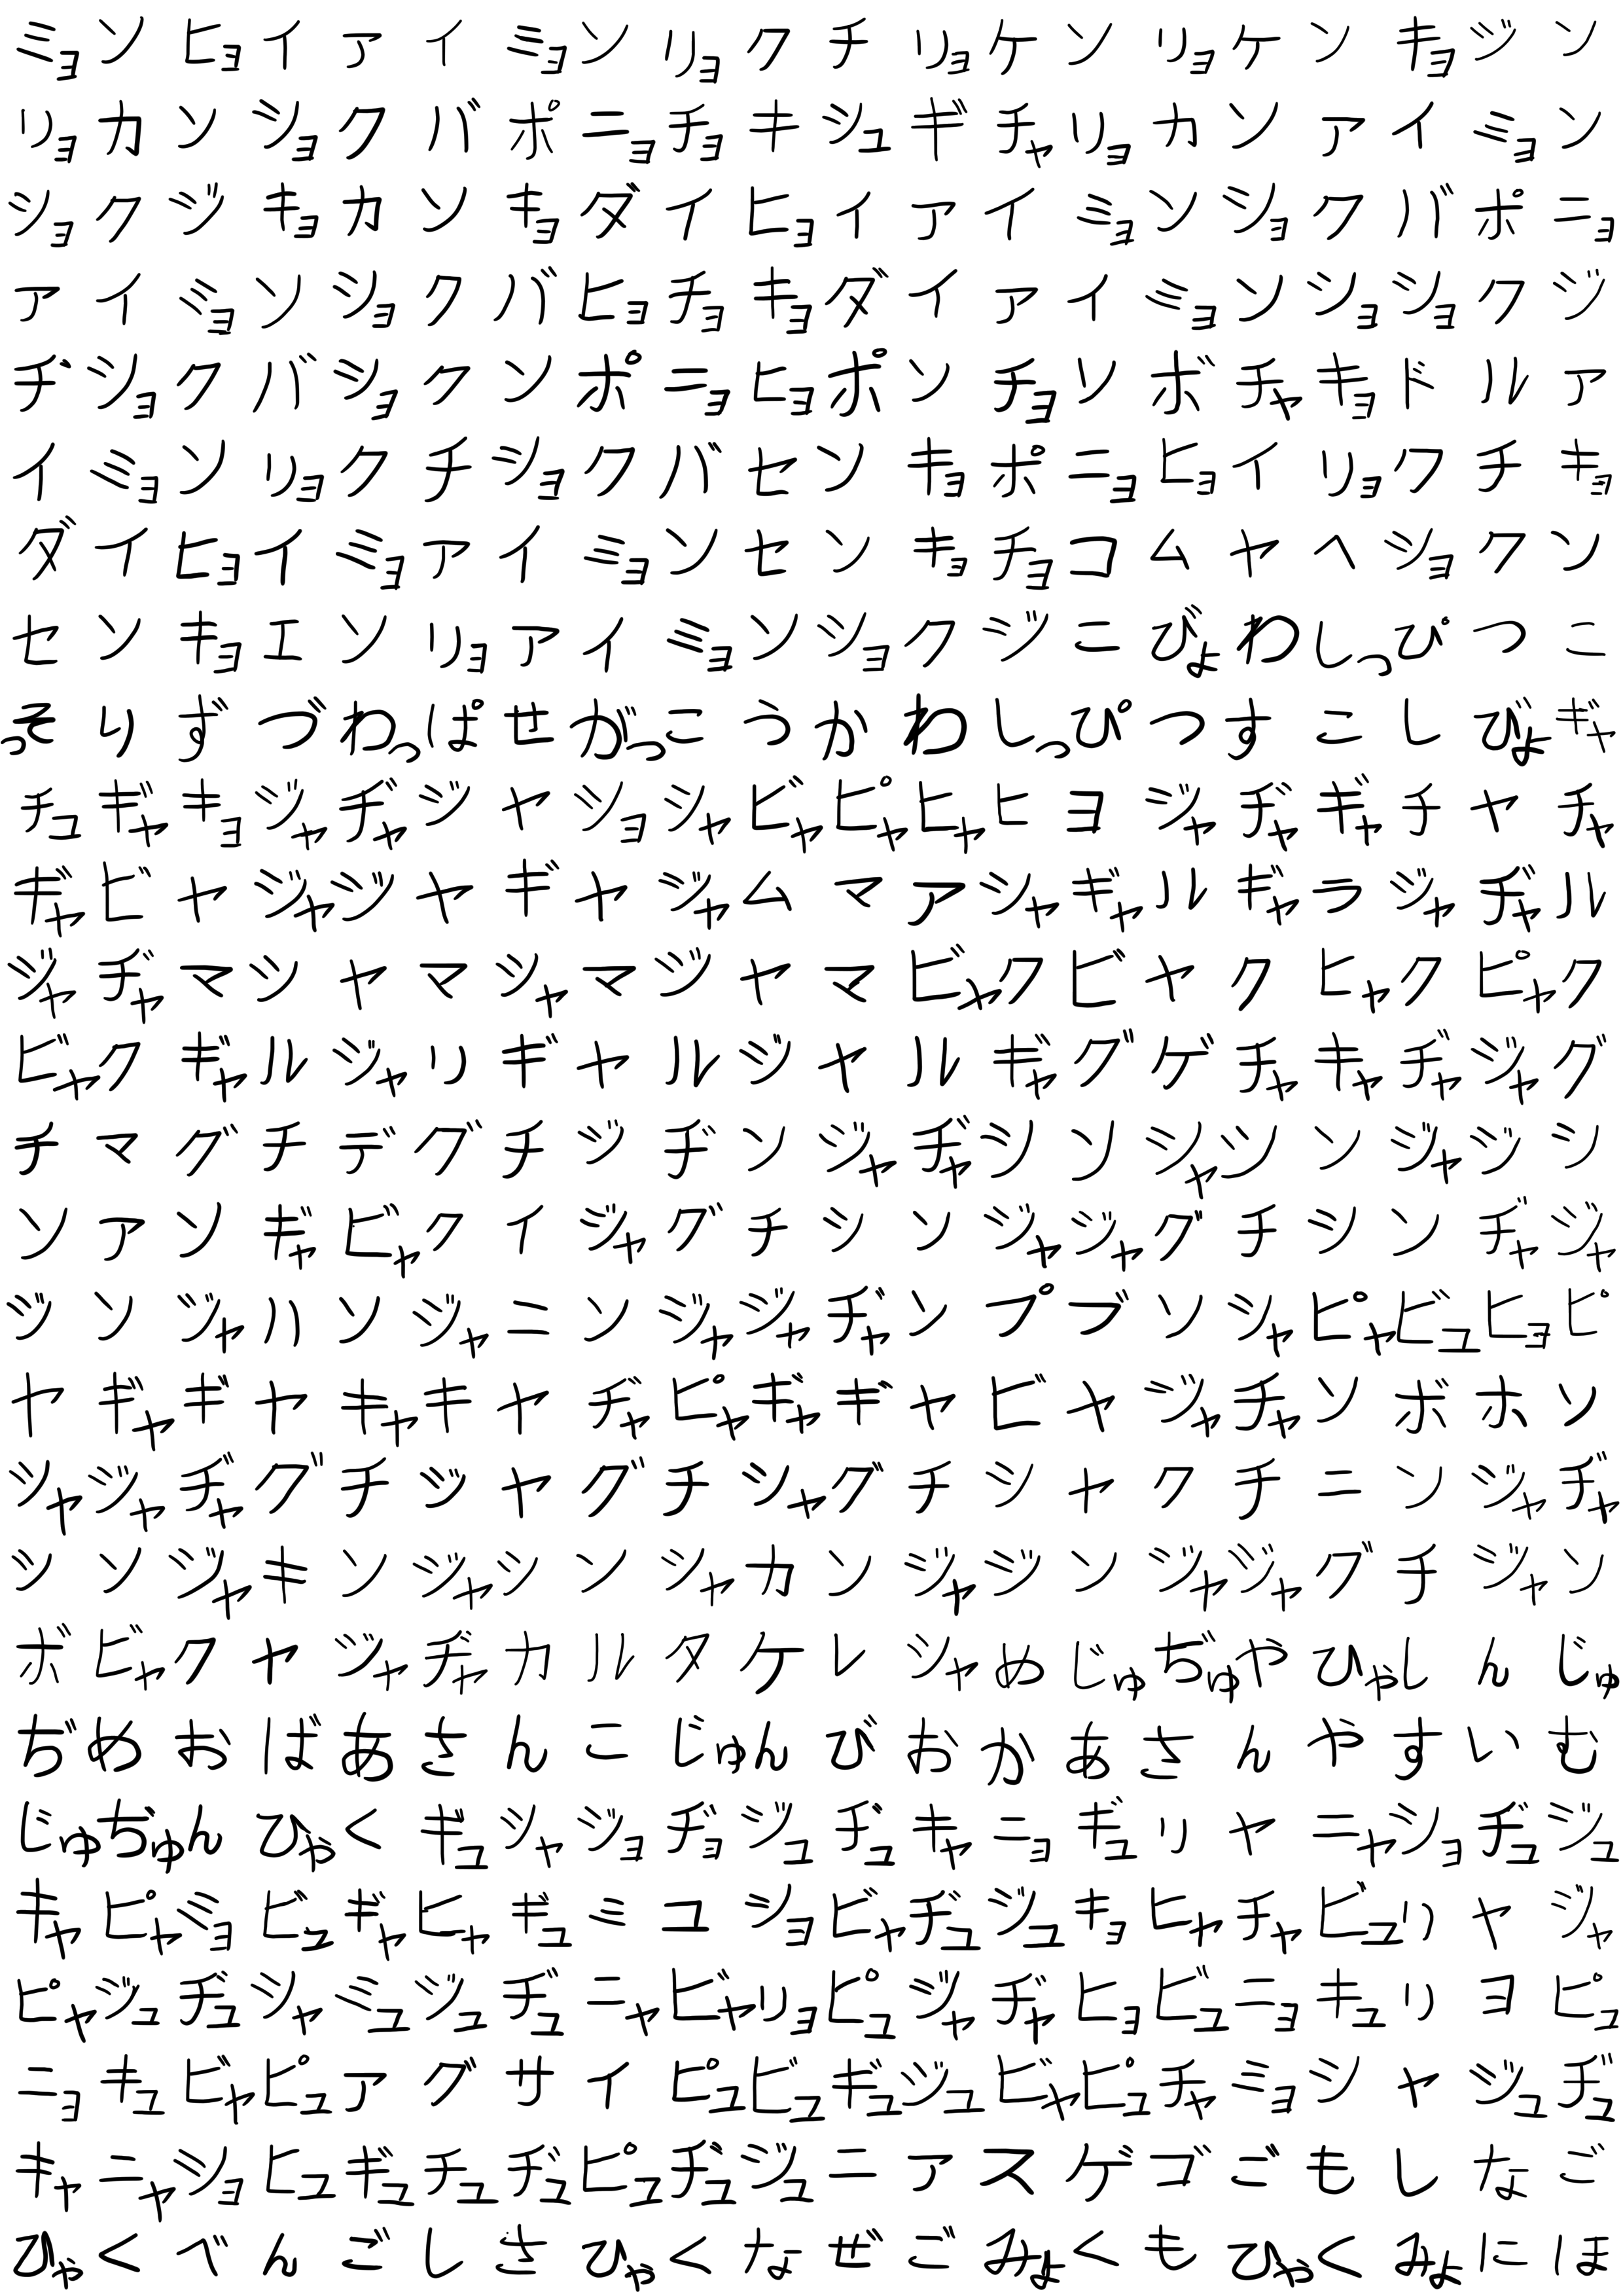 ミョンヒョイアイミョンリョクチリョケンリョケンキョジン
リョカンショクバポニョチョキシュギチャリョカンアイミョン
ショクジキョカソキョダイヒョイアイミョンショクバポニョ
アイミョンショクバヒョチョキョダイアイミョンショショクジ
ヂショクバショクンポニョヒョポンチョソボチャキョドルア
イミョンリョクチショクバセンキョポニョヒョイリョクチキョ
ダイヒョイミョアイミョンセンキョチョコムヤヘショクン
センキョエンリョアイミョンショクジこびょわしっぴつこ
っそりずづわっぱせがっこうかわしっぴつすこしびょギャ
チュギャキョジャヂャジヤショシャビャピャヒャヒヨジャヂャギャチヤチャ
ギャビヤジャジヤギヤジャムマアシャギャルギャラジャヂャル
ジャヂャマシヤマシャマジヤマビャクビヤクヒャクピャク
ビャクギャルジャリギヤルジヤルギャグゲチャキャヂャジャグ
チマグチデグチジヂンジャヂャシンシャシンジャジシ
ンアンギャビャクイジャグチシンジャジャグチシンヂャジャ
ジンジャハンジャニンジャジャヂャンプブンシャピャビュヒョピ
ヤギャギヤキャキヤヂャピャギャギヤビヤジャチャンボホン
シャジャヂャグチジヤグチシャグチシヤクチニンジャヂャ
シンジャキンジャシンシャカンジャジンジャジャグチジャン
ボビャクヤジャヂャカルタケレシャめじゅぢゅやひゃしんじゅ
ぢめおばあさんこじゅんびおかあさんやすいむ
じゅぢゅんひゃくギュシャジョヂョジュヂュキャニョギュリヤニャショヂュジュ
キャピャミョビュギャヒャギュミユショビャヂュジュキョヒャチャビュリヤジャ
ピャジュヂュシャミュジュヂュニャビャリョピュジャヂャヒョビュニョキュリヨピュ
ニョキュビャピュアグサイピュビュギュジュビャピュチャミョシャジュヂュ
キャニャショヒュギュチュヂュピュヂュジュニアスゲゴごもしなご
ひゃくべんごしさひゃくなぜごみょくもひゃくみょにほ